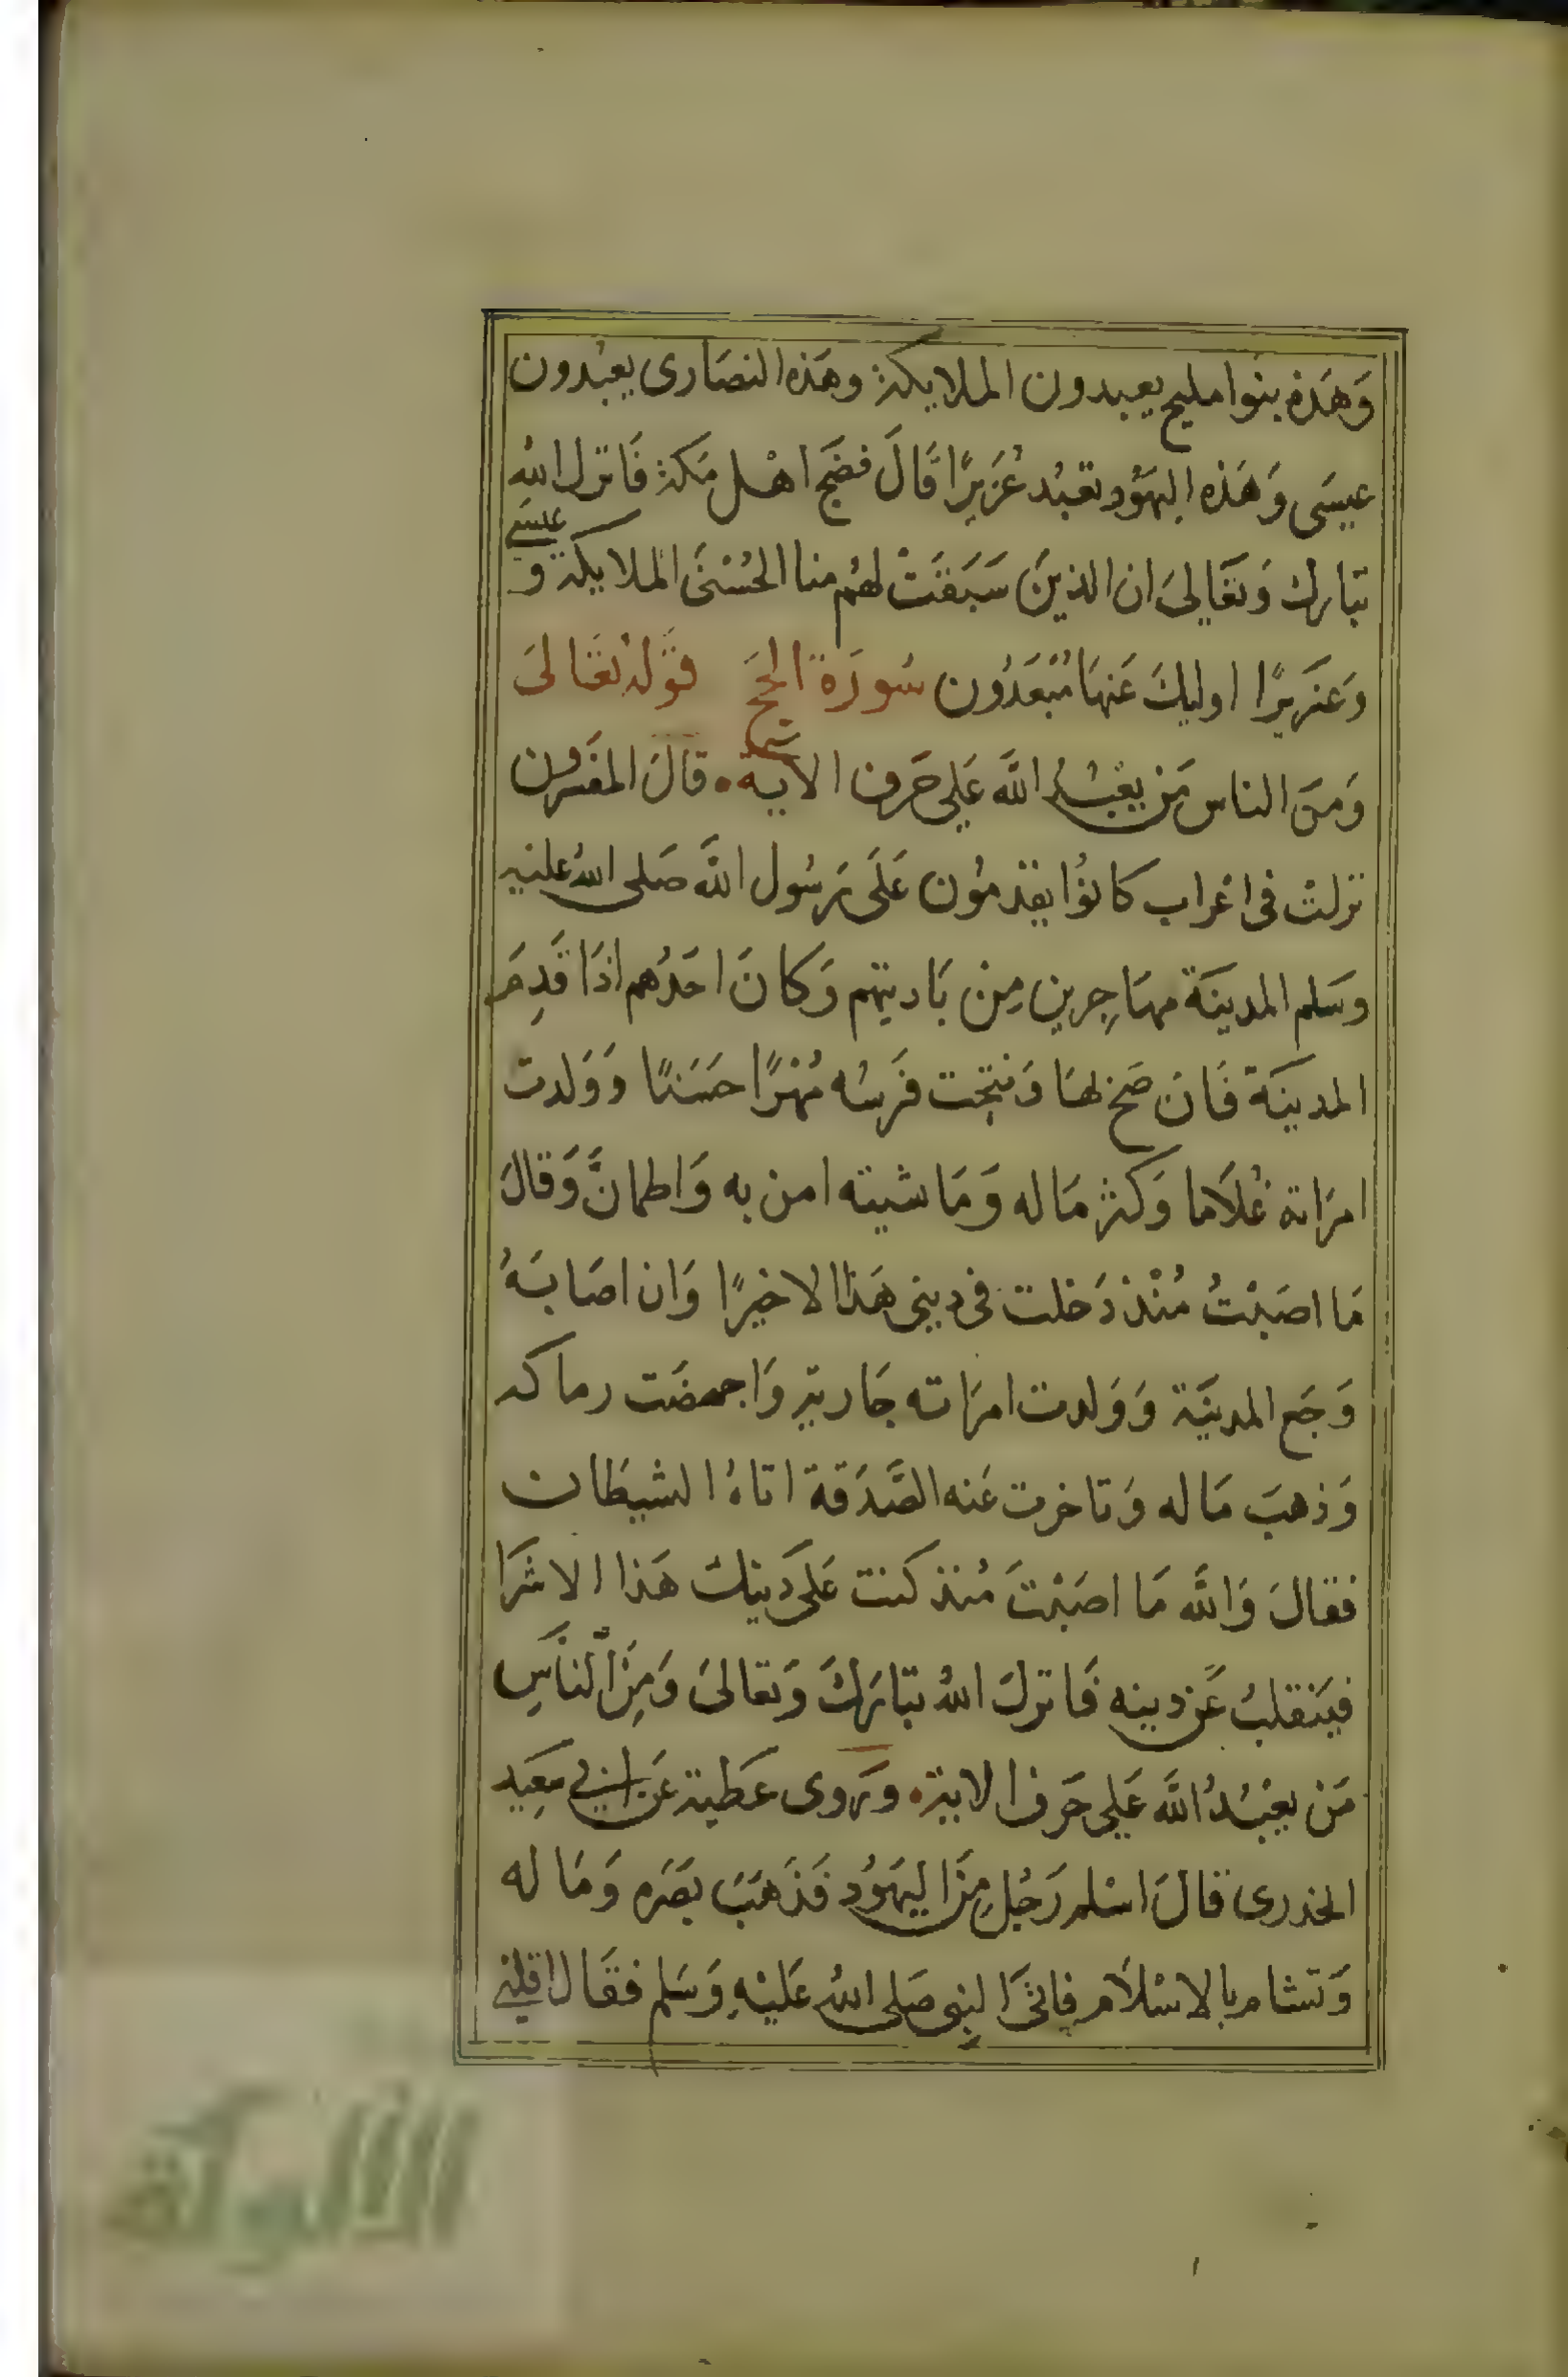 وَهَذِه بنَوا مليح يعبدون الملايكة وهَذه النصَارى يعبْدون
عيسَى وَهَذه اليهَوُد تعَبُد عُزَيرًا قَالَ فضَجَ اهْل مَكة فَانزل اللهُ
تبَارك وَتعَالىَ ان الذينَ سَبَقَتْ لهُم منا الحُسْنىَ الملايكة وَ عيسَى
وَعزَيرًا اوليكَ عَنهَا مُبْعَدُون سُورَة الحَج قَولهُ تعَالىَ
وَمنَ الناس مَن يعْبُدُ اللهَ عَلى حَرف الايَة • قالَ المفَسرون
نزلتْ فى اعْراب كانوُا يقدمُون عَلَى رَسُول اللهَ صَلى اللهُ عليْه
وسَلم المدينَة مهَاجِرين مِنْ بَاديتهم وَكانَ احَدُهم اذَا قَدِمَ
المدينَة فَانَ صَح بهَا وَنتجَت فَرسُه مُهْرًا حسَنًا وَوَلدت
امرَاتة غُلاَما وَكثر مَاله وَمَاشيته امن به وَاطمانَّ وَقالَ
مَا اصَبْتُ مُنْذ دَخلت فى دينى هَذا الا خيرًا وَان اصَابَهُ
وَجَع المدينَة وَوَلدت امرَاته جَارية وَاجهضَت رماكه
وَذهبَ مَاله وَتاخرت عَنه الصَّدَقة اتاهُ الشيطَان
فقالَ وَاللهَ مَا اصَبْتَ مُنذ كنت عَلى دَينك هَذا الا شرَا
فيَنقلبُ عَن دينه فَانزلَ اللهُ تبَارَكَ وَتعَالىَ وَمِنَ النَّاسِ
مَنْ يعْبُدُ اللهَ عَلى حَرف الاية • وَرَوى عَطية عَن ابى سَعِيد
الخدرى قالَ اسْلم رَجُل مِنَ اليهَوُد فَذَهَبَ بصَره وَمَاله
وَتشام بالاسْلاَم فاتىَ النبى صَلى اللهُ عَليْهِ وَسَلم فقَال اقلنى
الألوكة